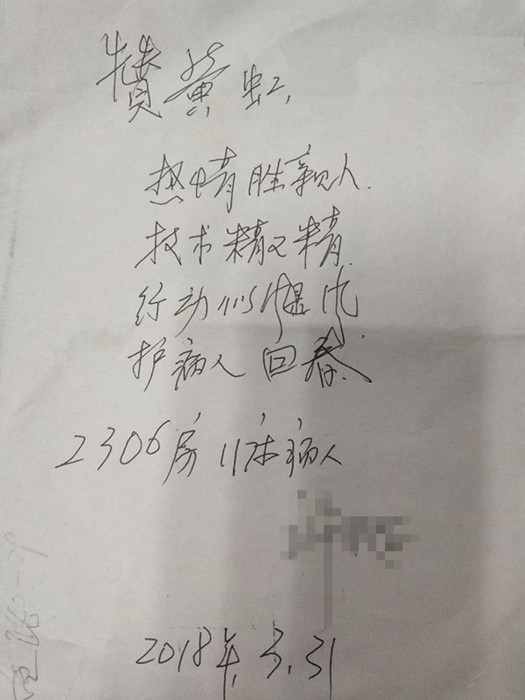 赞黄虹,
热情胜亲人.
技术精又精.
行动似煴风.
护病人回春.
2306房11床病人
2018年,3.31